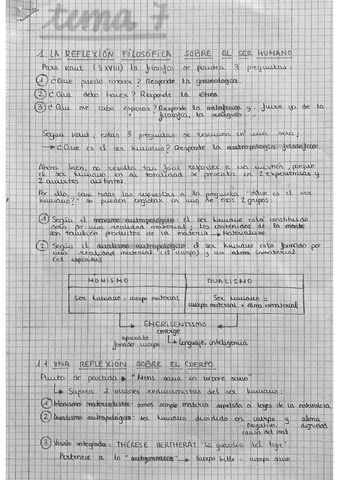 tema 7
1. LA REFLEXIÓN FILOSÓFICA SOBRE EL SER HUMANO
Para Kant (S XVIII) la filosofía se plantea 3 preguntas:
① ¿Que puedo conocer? Responde la gnoseología.
② ¿Que debo hacer? Responde la ética
③ ¿Que me cabe esperar? Responde la metafísica y, fuera ya de la
filosofía, la religión
Según Kant, estas 3 preguntas se resumen en una sola:
→ ¿Que es el ser humano? Responde la antropología filosófica.
Ahora bien, no resulta tan fácil responder a esa cuestión, porque
el ser humano en su totalidad se presenta en 2 experiencias y
2 ámbitos distintos.
Por ello, casi todas las respuestas a la pregunta "¿Que es el ser
humano?" se pueden englobar en uno de esos 2 grupos
① Según el monismo antropológico el ser humano está constituido
solo por una realidad material; los contenidos de la mente
son también productos de la materia → Naturalismo
② Según el dualismo antropológico el ser humano está formado por
una realidad material (el cuerpo) y un alma inmaterial
(el espíritu)
MONISMO DUALISMO
Ser humano = cuerpo material Ser Humano =
cuerpo material + alma inmaterial
→ EMERGENTISMO ←
emerge
formado cuerpo → lenguaje, inteligencia
1.1 UNA REFLEXIÓN SOBRE EL CUERPO
Punto de partida → "Mens sana in corpore sano"
→ Supera 2 visiones reduccionistas del ser humano:
① Monismo materialista: somos simple materia sometida a leyes de la naturaleza
② Dualismo antropológico: ser humano dividido en cuerpo y alma
Negativo, dignidad
causa del mal
③ Visión integrada: THÉRÈSE BERTHERAT "La guarida del tigre".
Pertenece a la "antigimnasia" → cuerpo bello = cuerpo sano